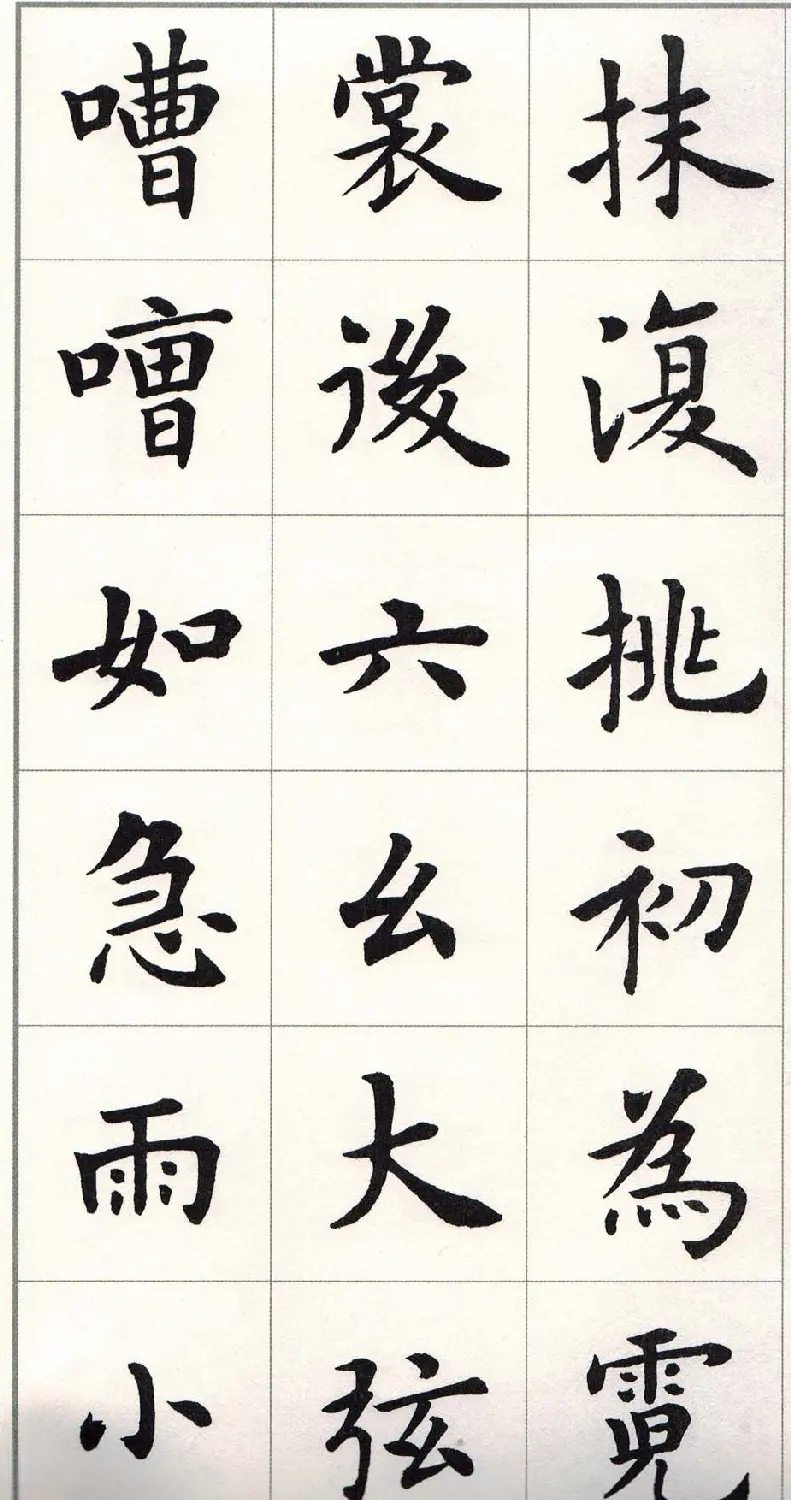 抹復挑初為霓
裳後六幺大弦
嘈嘈如急雨小